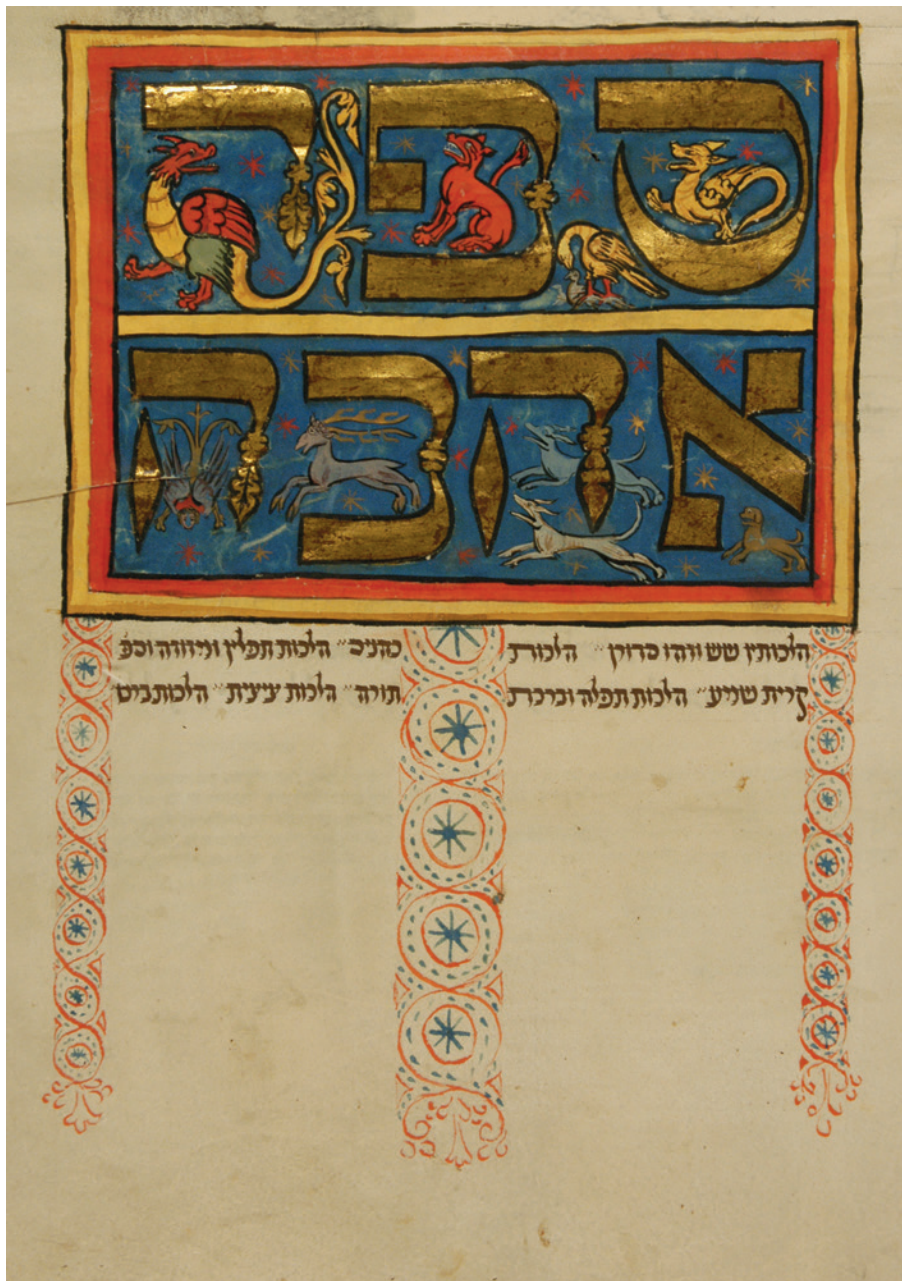 ספר
אהבה
הלכותיו שש וזהו סדורן״ הלכות
קרית שמע״ הלכות תפלה וברכת
כהנים״ הלכות תפלין ומזוזה וספ
תורה״ הלכות ציצית״ הלכות